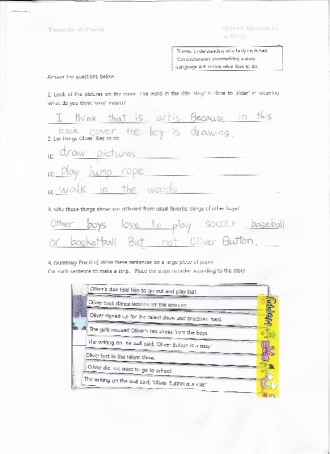 Tomie dePaola
Oliver Button is
a Sissy
Theme: Understanding why bullying is bad
Comprehension: summarizing a story
Language Art: telling what likes to do.
Answer the questions below.
1. Look at the pictures on the cover. The word in the title 'sissy' is close to 'sister' in meaning.
What do you think 'sissy' means?
I think that is artis. Because in this
book cover the boy is drawing.
2. List things Oliver likes to do.
draw pictures.
play jump rope
walk in the woods
3. Why does things shown are different from usual favorite things of other boys?
Other boys love to play soccer baseball
or basketball But not Oliver Button.
4. (Summary Practice) Write these sentences on a large piece of paper.
Cut each sentence to make a strip. Place the strips in order according to the story.
Oliver's dad told him to go out and play ball.
Oliver took dance lessons for the exercise.
Oliver signed up for the talent show and practiced hard.
The girls rescued Oliver's tap shoes from the boys.
The writing on the wall said, "Oliver Button is a sissy"
Oliver lost in the talent show.
Oliver did not want to go to school.
The writing on the wall said, "Oliver Button is a star"